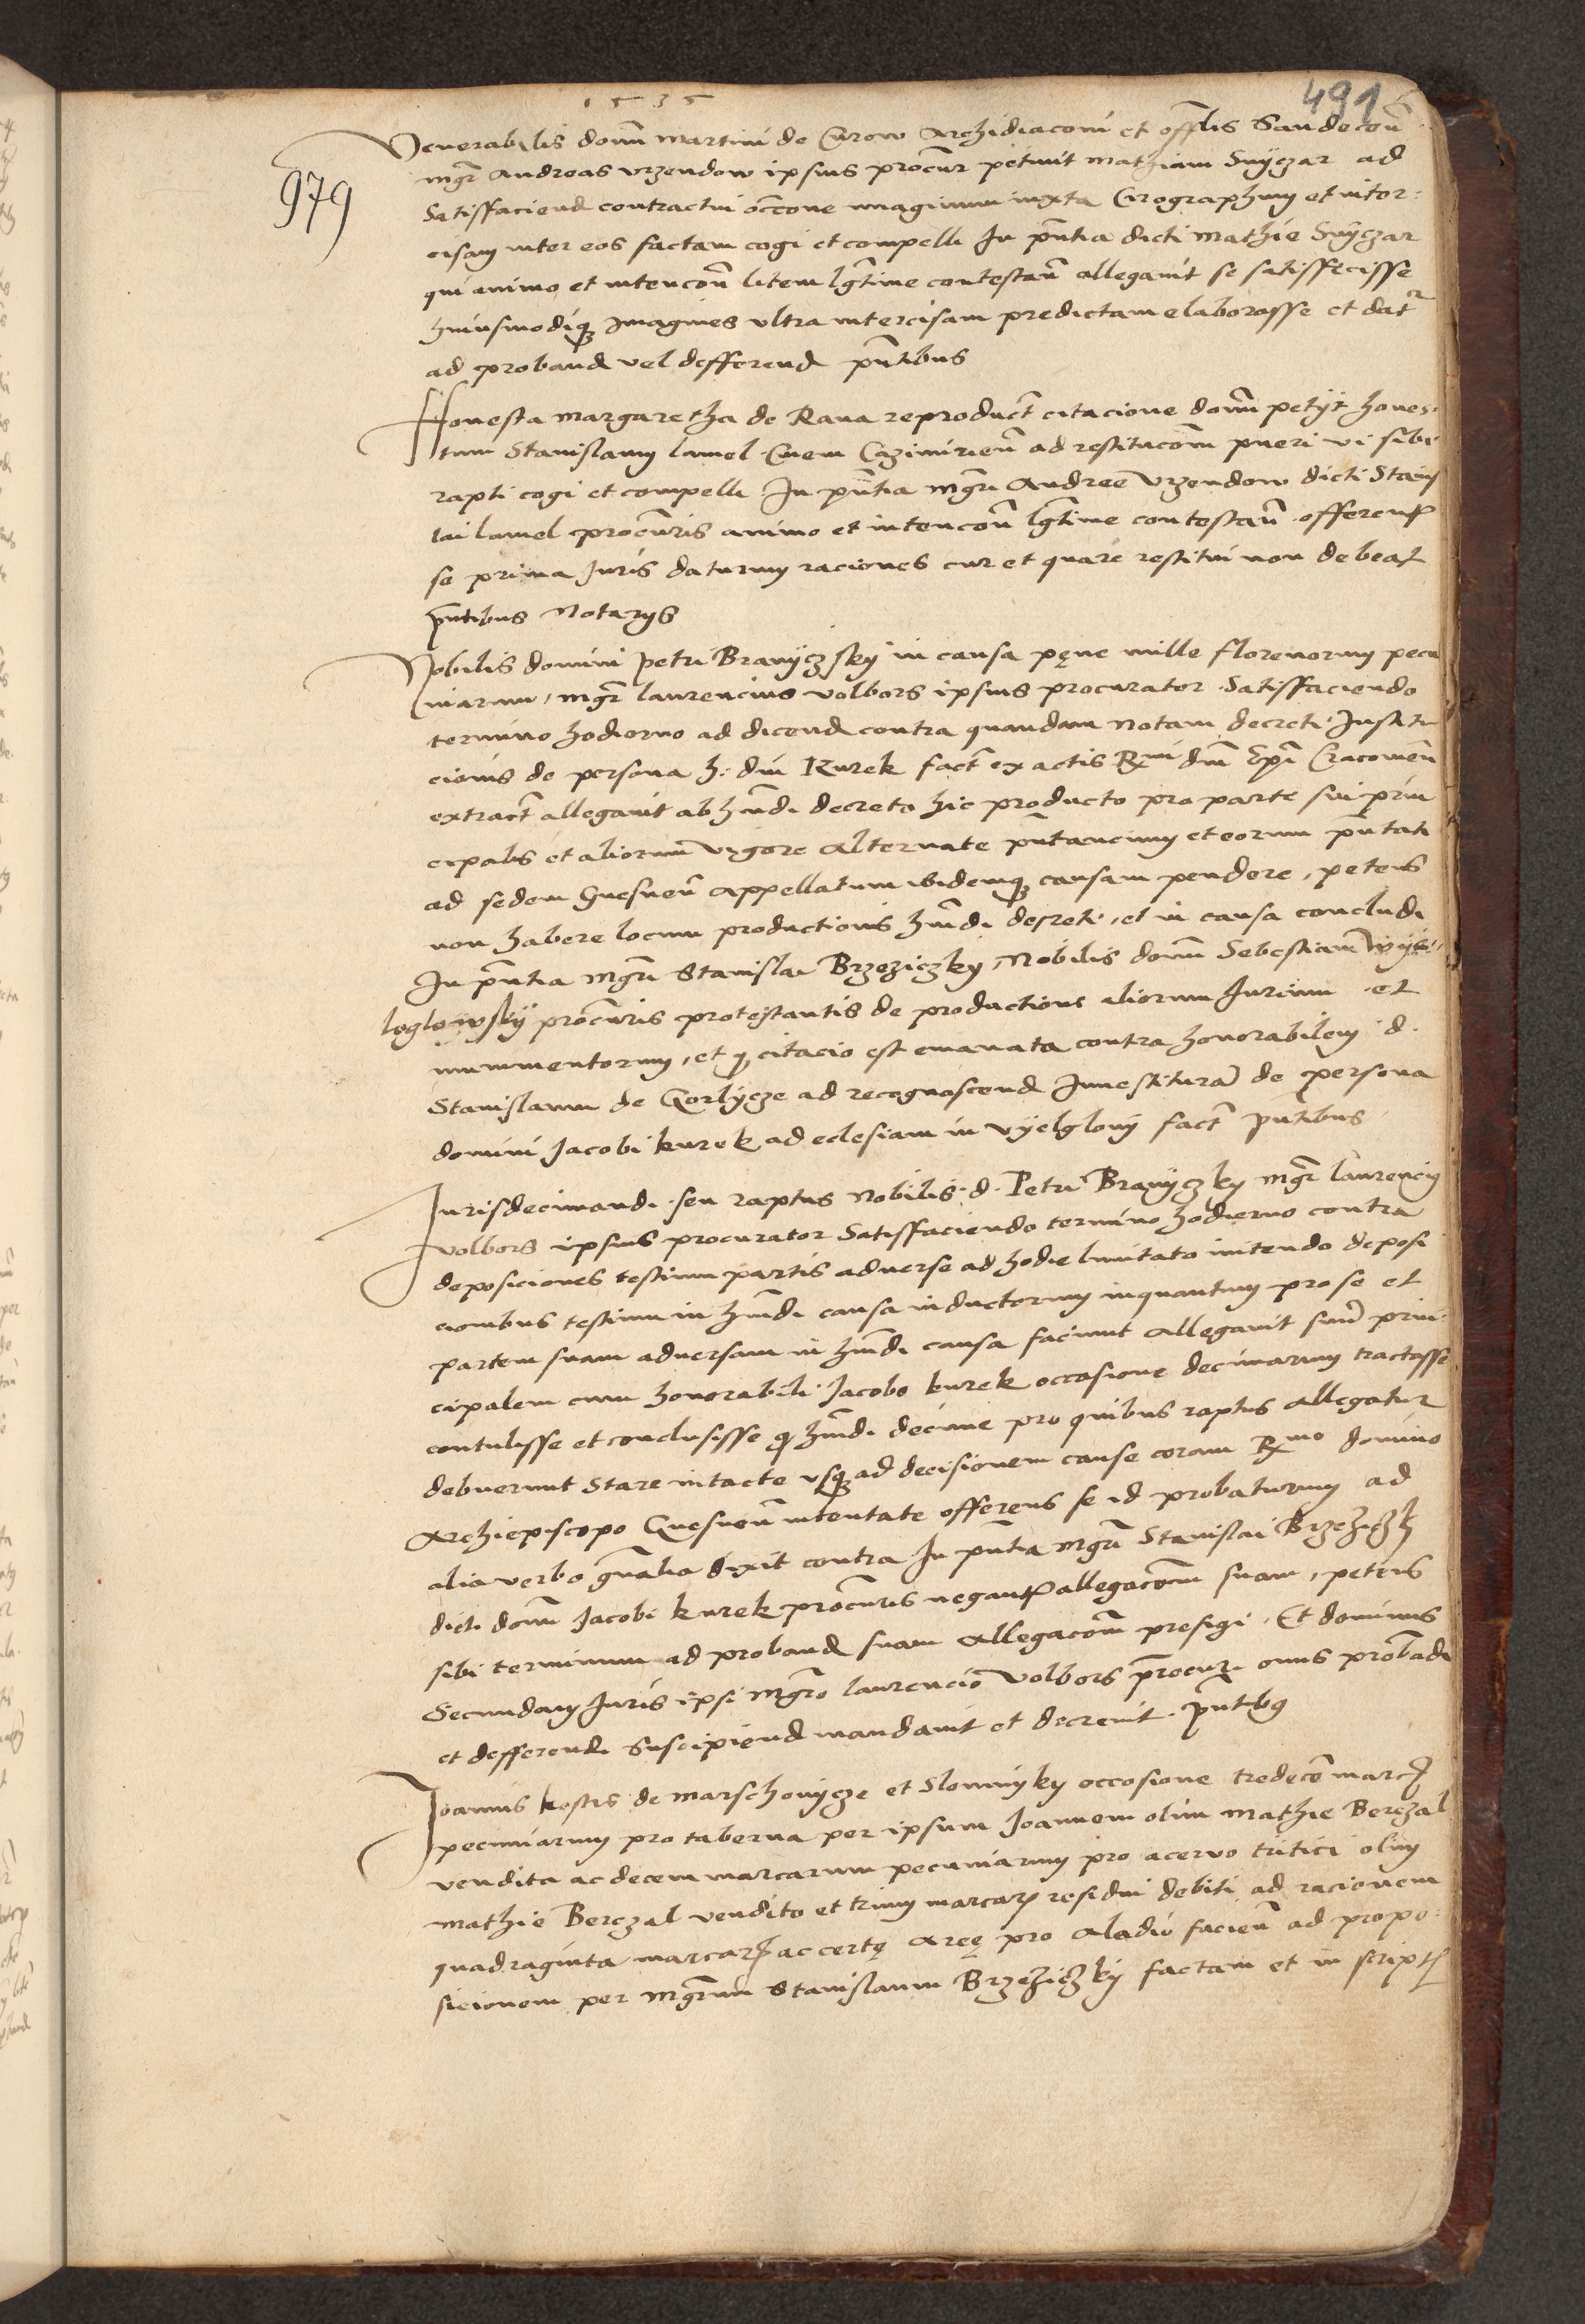 1535
491
979
Venerabilis domni Martini de Curow Archidiaconi et offlis Sandecen
mgr Andreas Urzendow ipsius procur petivit Mathiam Snÿczar ad
Satiffaciend contractui occone imaginum iuxta Cirographum et inter:
cisam inter eos factam cogi et compelli In pntia dicti Mathie Snÿczar
qui animo et intencon litem lgtime contestan allegavit se satiffecisse
huiusmodiq imagines ultra intercisam predictam elaborasse et datr
ad proband vel defferend pntibus
Honesta Margaretha de Rava reproduct citacione domni petÿt hones-
tum Stanislaum Lamel Civem Cazimirien ad restitucom pueri vi sibi
rapti cogi et compelli In pntia mgri Andree Urzendow dicti Stanis
lai Lamel procuris animo et intencon lgtime contestan offerent
se prima Juris daturum raciones cur et quare restitui non debeat
pntibus Notarÿs
Nobilis domini Petri Branÿczskÿ in causa pene mille florenorum pecu
niarum, mgr Laurencius Volbors ipsius procurator Satiffaciendo
termino hodierno ad dicend contra quandam Notam decreti Institu
cionis de persona h: dni Kurek fact ex actis Rmi dni Epi Cracovien
extract allegavit ab hmdi decreto hic producto pro parte sui prin
cipalis et aliorum vigore alternate pntancium et eorum pntati
ad sedem Gnesnen Appellatum ibidemq causam pendere, petens
non habere locum productionis hmdi decreti, et in causa concludi
In pntia mgri Stanislai Brzeziczky, Nobilis domni Sebestiani Wÿe
loglowskÿ procuris protestantis de productione aliorum Jurium et
munimentorum, et q citacio est emanata contra honorabilem d.
Stanislaum de Gorlÿcze ad recognoscend Investitura de persona
domini Jacobi Kurek ad eclesiam in Vÿelglovÿ fact pntibus
Jurisdecimandi seu raptus Nobilis d. Petri Branÿczky mgr Laurenciÿ
Volbors ipsius procurator Satiffaciendo termino hodierno contra
deposiciones testium partis adverse ad hodie limitato initendo deposi
cionibus testium in hmdi causa inductorum inquantum pro se et
partem suam adversam in hmdi causa faciunt allegavit suum prin-
cipalem cum honorabili Jacobo Kurek occasione decimarum tractasse
contulisse et conclusisse q hmdi decime pro quibus raptus allegatur
debuerunt stare intacte usq ad decisionem cause coram Rmo domino
Archiepiscopo Gnesnen intentate offerens se id probaturum ad
alia verbo gnalia dixit contra In pntia mgri Stanislai Brzezick
dicti domni Jacobi Kurek procuris negant allegacom suam, petens
sibi terminum ad proband suam allegacom prefigi. Et dominus
Secundam Juris ipsi mgro Laurencio Volbors procuri onus probadi
et defferendi Suscipiend mandavit et decrevit. pntibg
Joannis Kostis de Marschovÿcze et Slomnÿky occasione tredecem marcr
pecuniarum pro taberna per ipsum Joannem olim Mathie Berczal
vendita ac decem marcarum pecuniarum pro acervo tritici olim
Mathie Berczal vendito et trium marcar residui debiti ad racionem
quadraginta marcar ac certe Aree pro Aladio facien ad propo-
sicionem per mgrum Stanislaum Brzeziczkÿ factam et in script